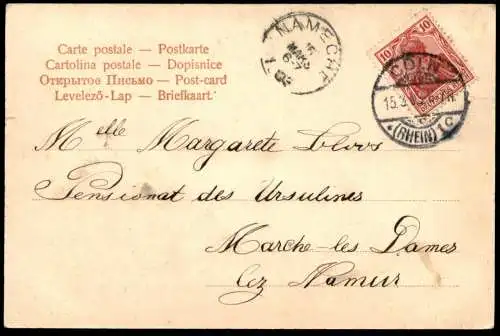 Carte postale — Postkarte
Cartolina postale — Dopisnice
Открытое Письмо — Post-card
Levelező-Lap — Briefkaart.
NAMECHE
10 10
CÖLN
15.3
(RHEIN) 1
Mlle Margarete
Pensionat des Ursulines
Marche-les Dames
lez Namur